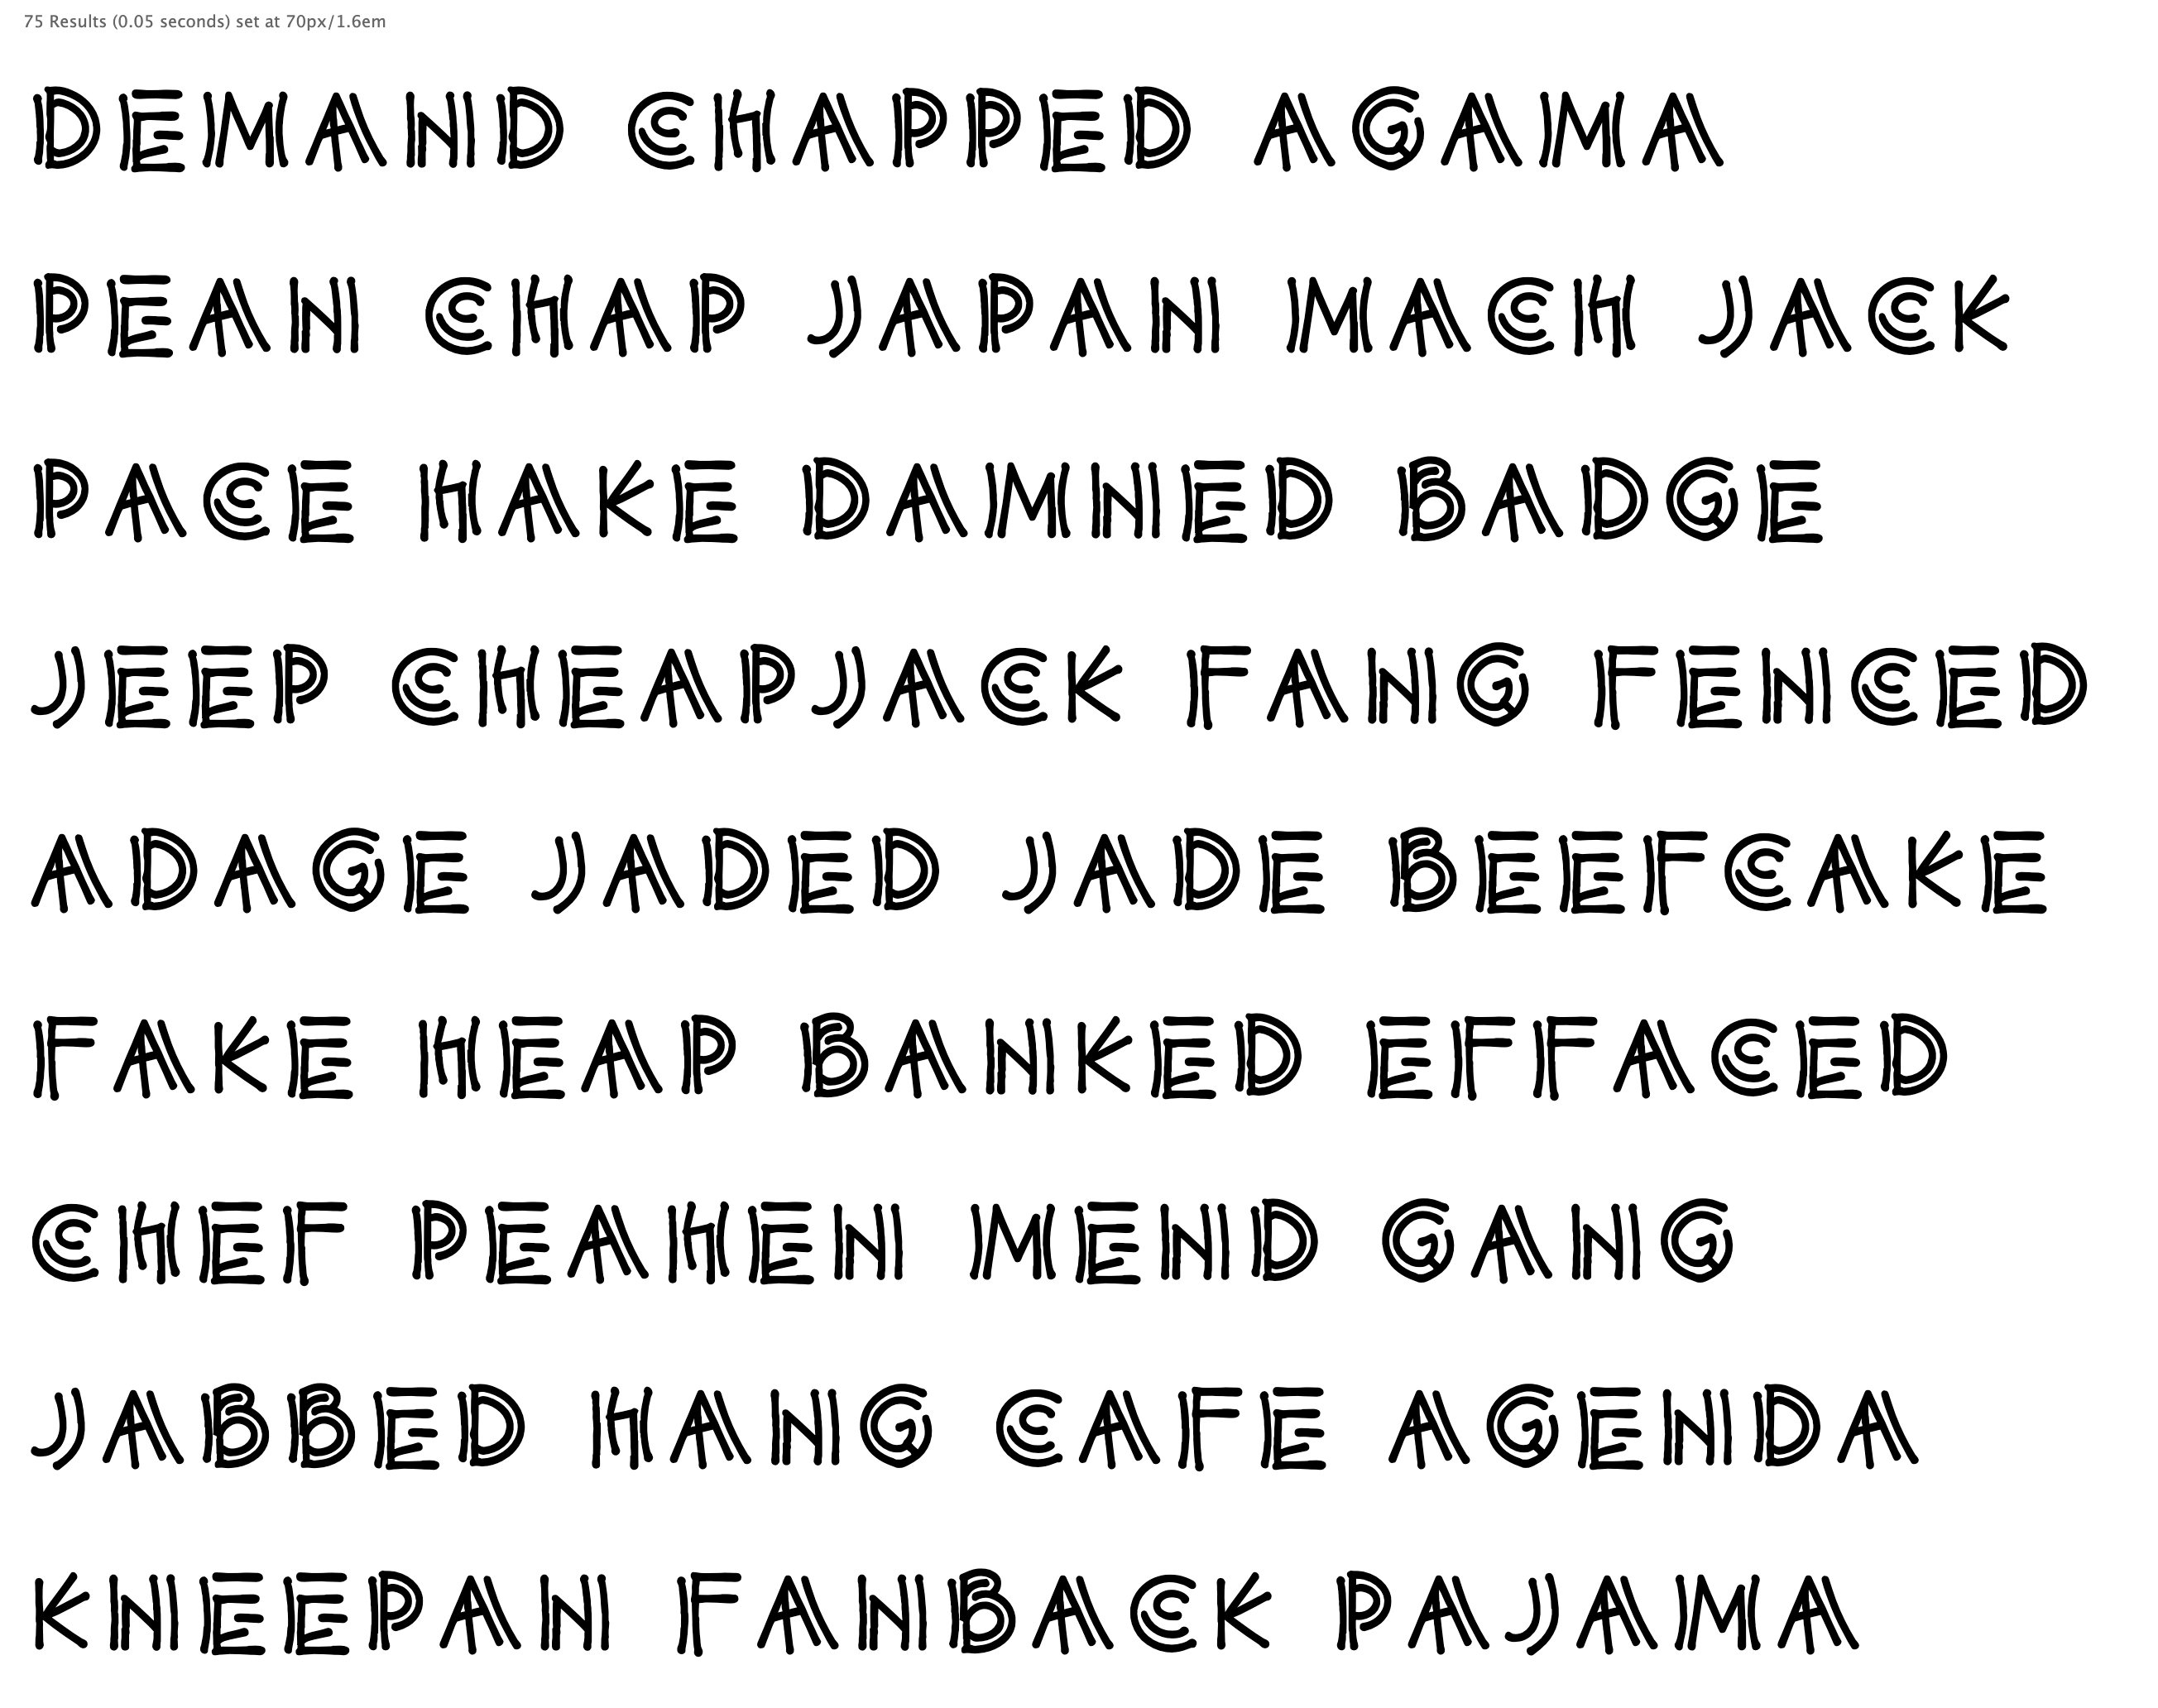 75 Results (0.05 seconds) set at 70px/1.6em
DEMAND CHAPPED AGAMA
PEAN CHAP JAPAN MACH JACK
PACE HAKE DAMNED BADGE
JEEP CHEAPJACK FANG FENCED
ADAGE JADED JADE BEEFCAKE
FAKE HEAP BANKED EFFACED
CHEF PEAHEN MEND GANG
JABBED HANG CAFE AGENDA
KNEEPAN FANBACK PAJAMA